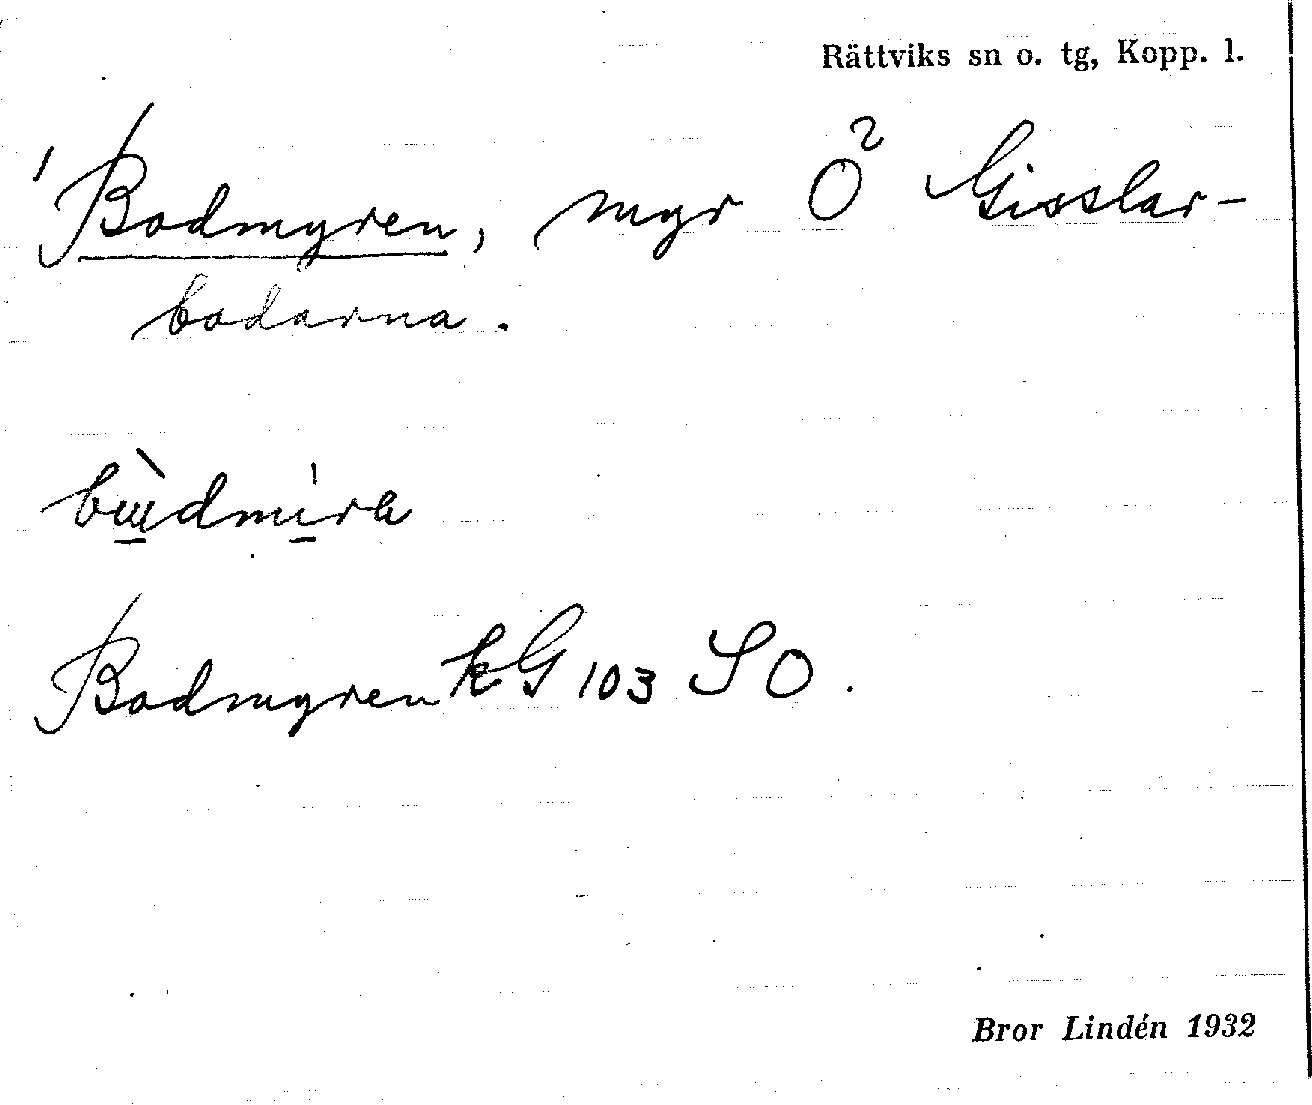 Rättviks sn o. tg, Kopp. l.
'Bodmyren, myr Ö² Gisslar-
bodarna.
bɯ̀dmíra
Bodmyren kG 103 SO.
Bror Lindén 1932